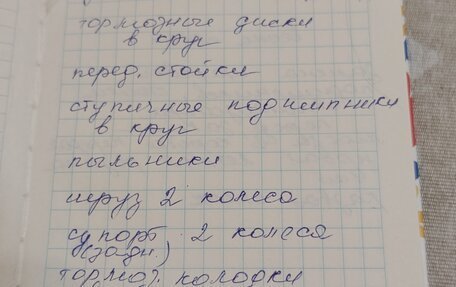 тормозные диски
в круг
перед. стойки
ступичные подшипники
в круг
пыльники
шруз 2 колесо
супорт 2 колеса
(задн.)
тормоз. колодки